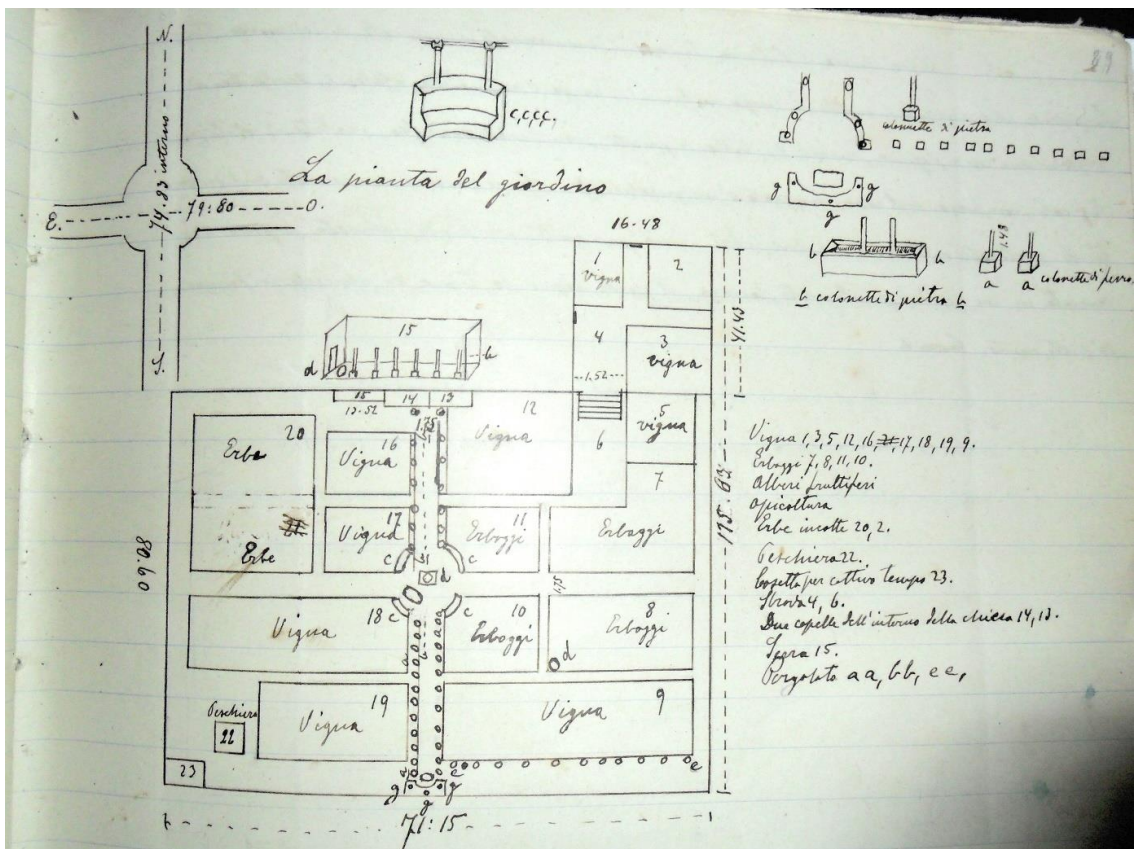 29
N.
74.83 interno
E.
79:80
O.
S.
c,c,c,c.
La pianta del giordino
colonette di pietra
g
g
g
b
b
1,47
a
a
colonette di ferro.
b colonette di pietra b
16-48
1
Vigna
2
4
3
vigna
1.52
41.43
15
d
b
15
14
13
13-52
1.75
12
Vigna
5
vigna
6
7
20
Erbe
16
Vigna
17
Vigna
11
Erboggi
Erboggi
Erbe
c
c
d
80.60
115.03
18
Vigna
c
c
10
Erboggi
1,75
8
Erboggi
d
Peschiera
22
19
Vigna
9
Vigna
23
e
e
e
g
g
g
71:15
Vigna 1,3,5,12,16, 17, 18, 19, 9.
Erboggi 7, 8, 11, 10.
Alberi fruttiferi
Apicoltura
Erbe incolte 20, 2.
Peschiera 22.
Casetta per cattivo tempo 23.
Strada 4, 6.
Due capelle dell'interno della chiesa 14, 13.
Serra 15.
Pergolato a a, b b, e e,